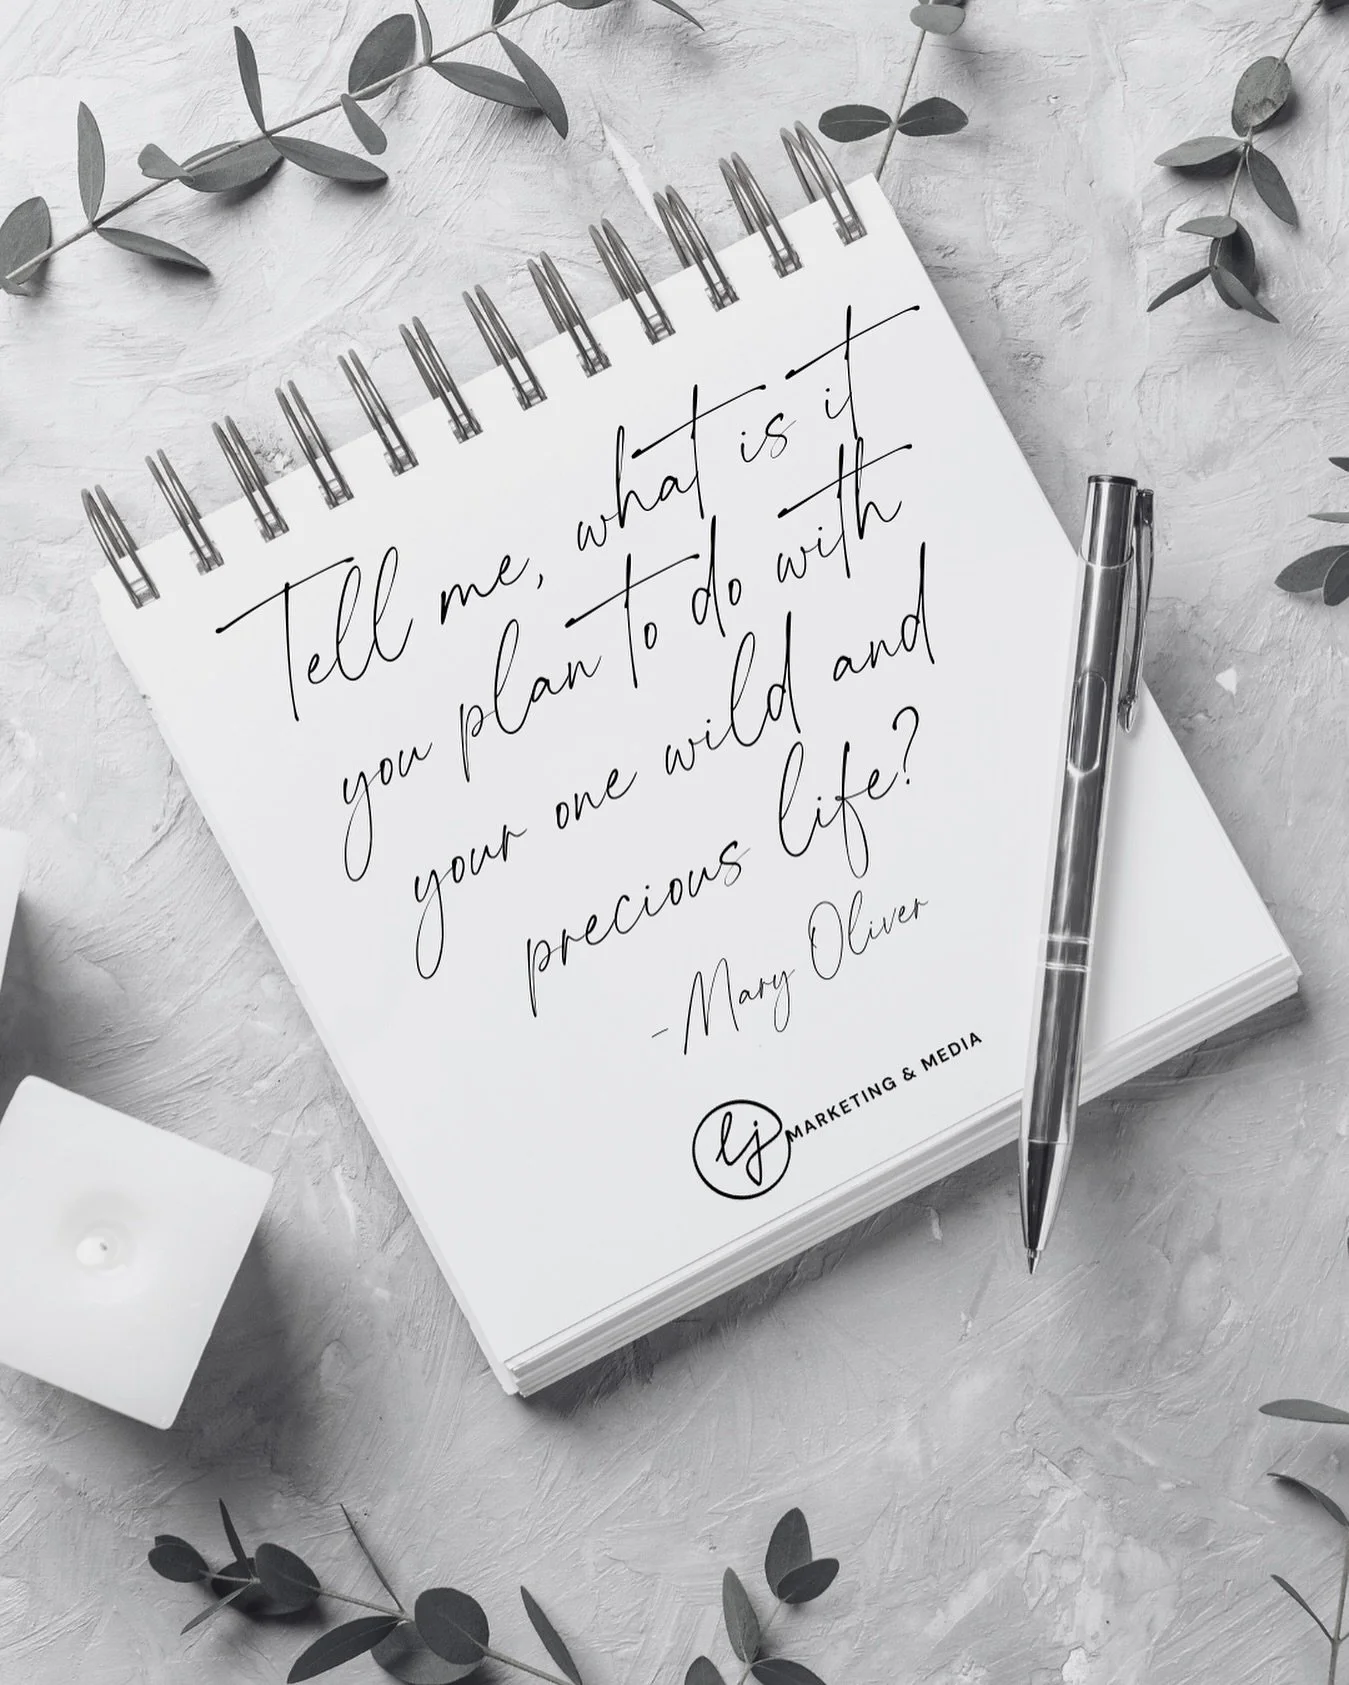 Tell me, what is it
you plan to do with
your one wild and
precious life?
-Mary Oliver
lj MARKETING & MEDIA